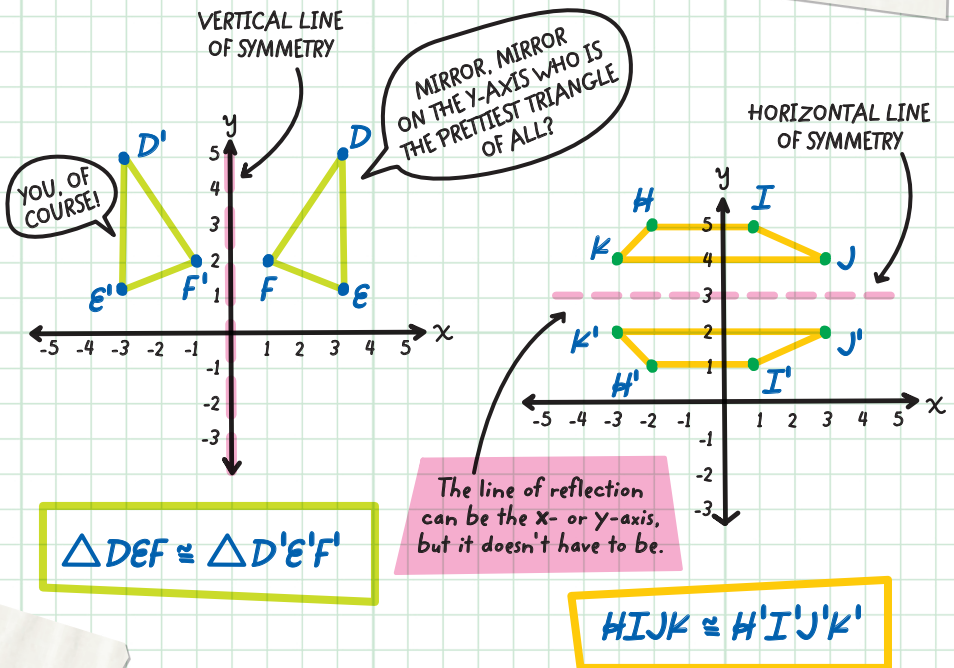 VERTICAL LINE
OF SYMMETRY
MIRROR, MIRROR
ON THE Y-AXIS WHO IS
THE PRETTIEST TRIANGLE
OF ALL?
YOU, OF
COURSE!
y
5
4
3
2
1
-1
-2
-3
D'
D
E'
F'
F
E
-5 -4 -3 -2 -1 1 2 3 4 5 x
HORIZONTAL LINE
OF SYMMETRY
y
H I
K J
5
4
3
2
1
K' J'
H' I'
-5 -4 -3 -2 -1 1 2 3 4 5 x
-1
-2
-3
The line of reflection
can be the x- or y-axis,
but it doesn't have to be.
△DEF ≅ △D'E'F'
HIJK ≅ H'I'J'K'